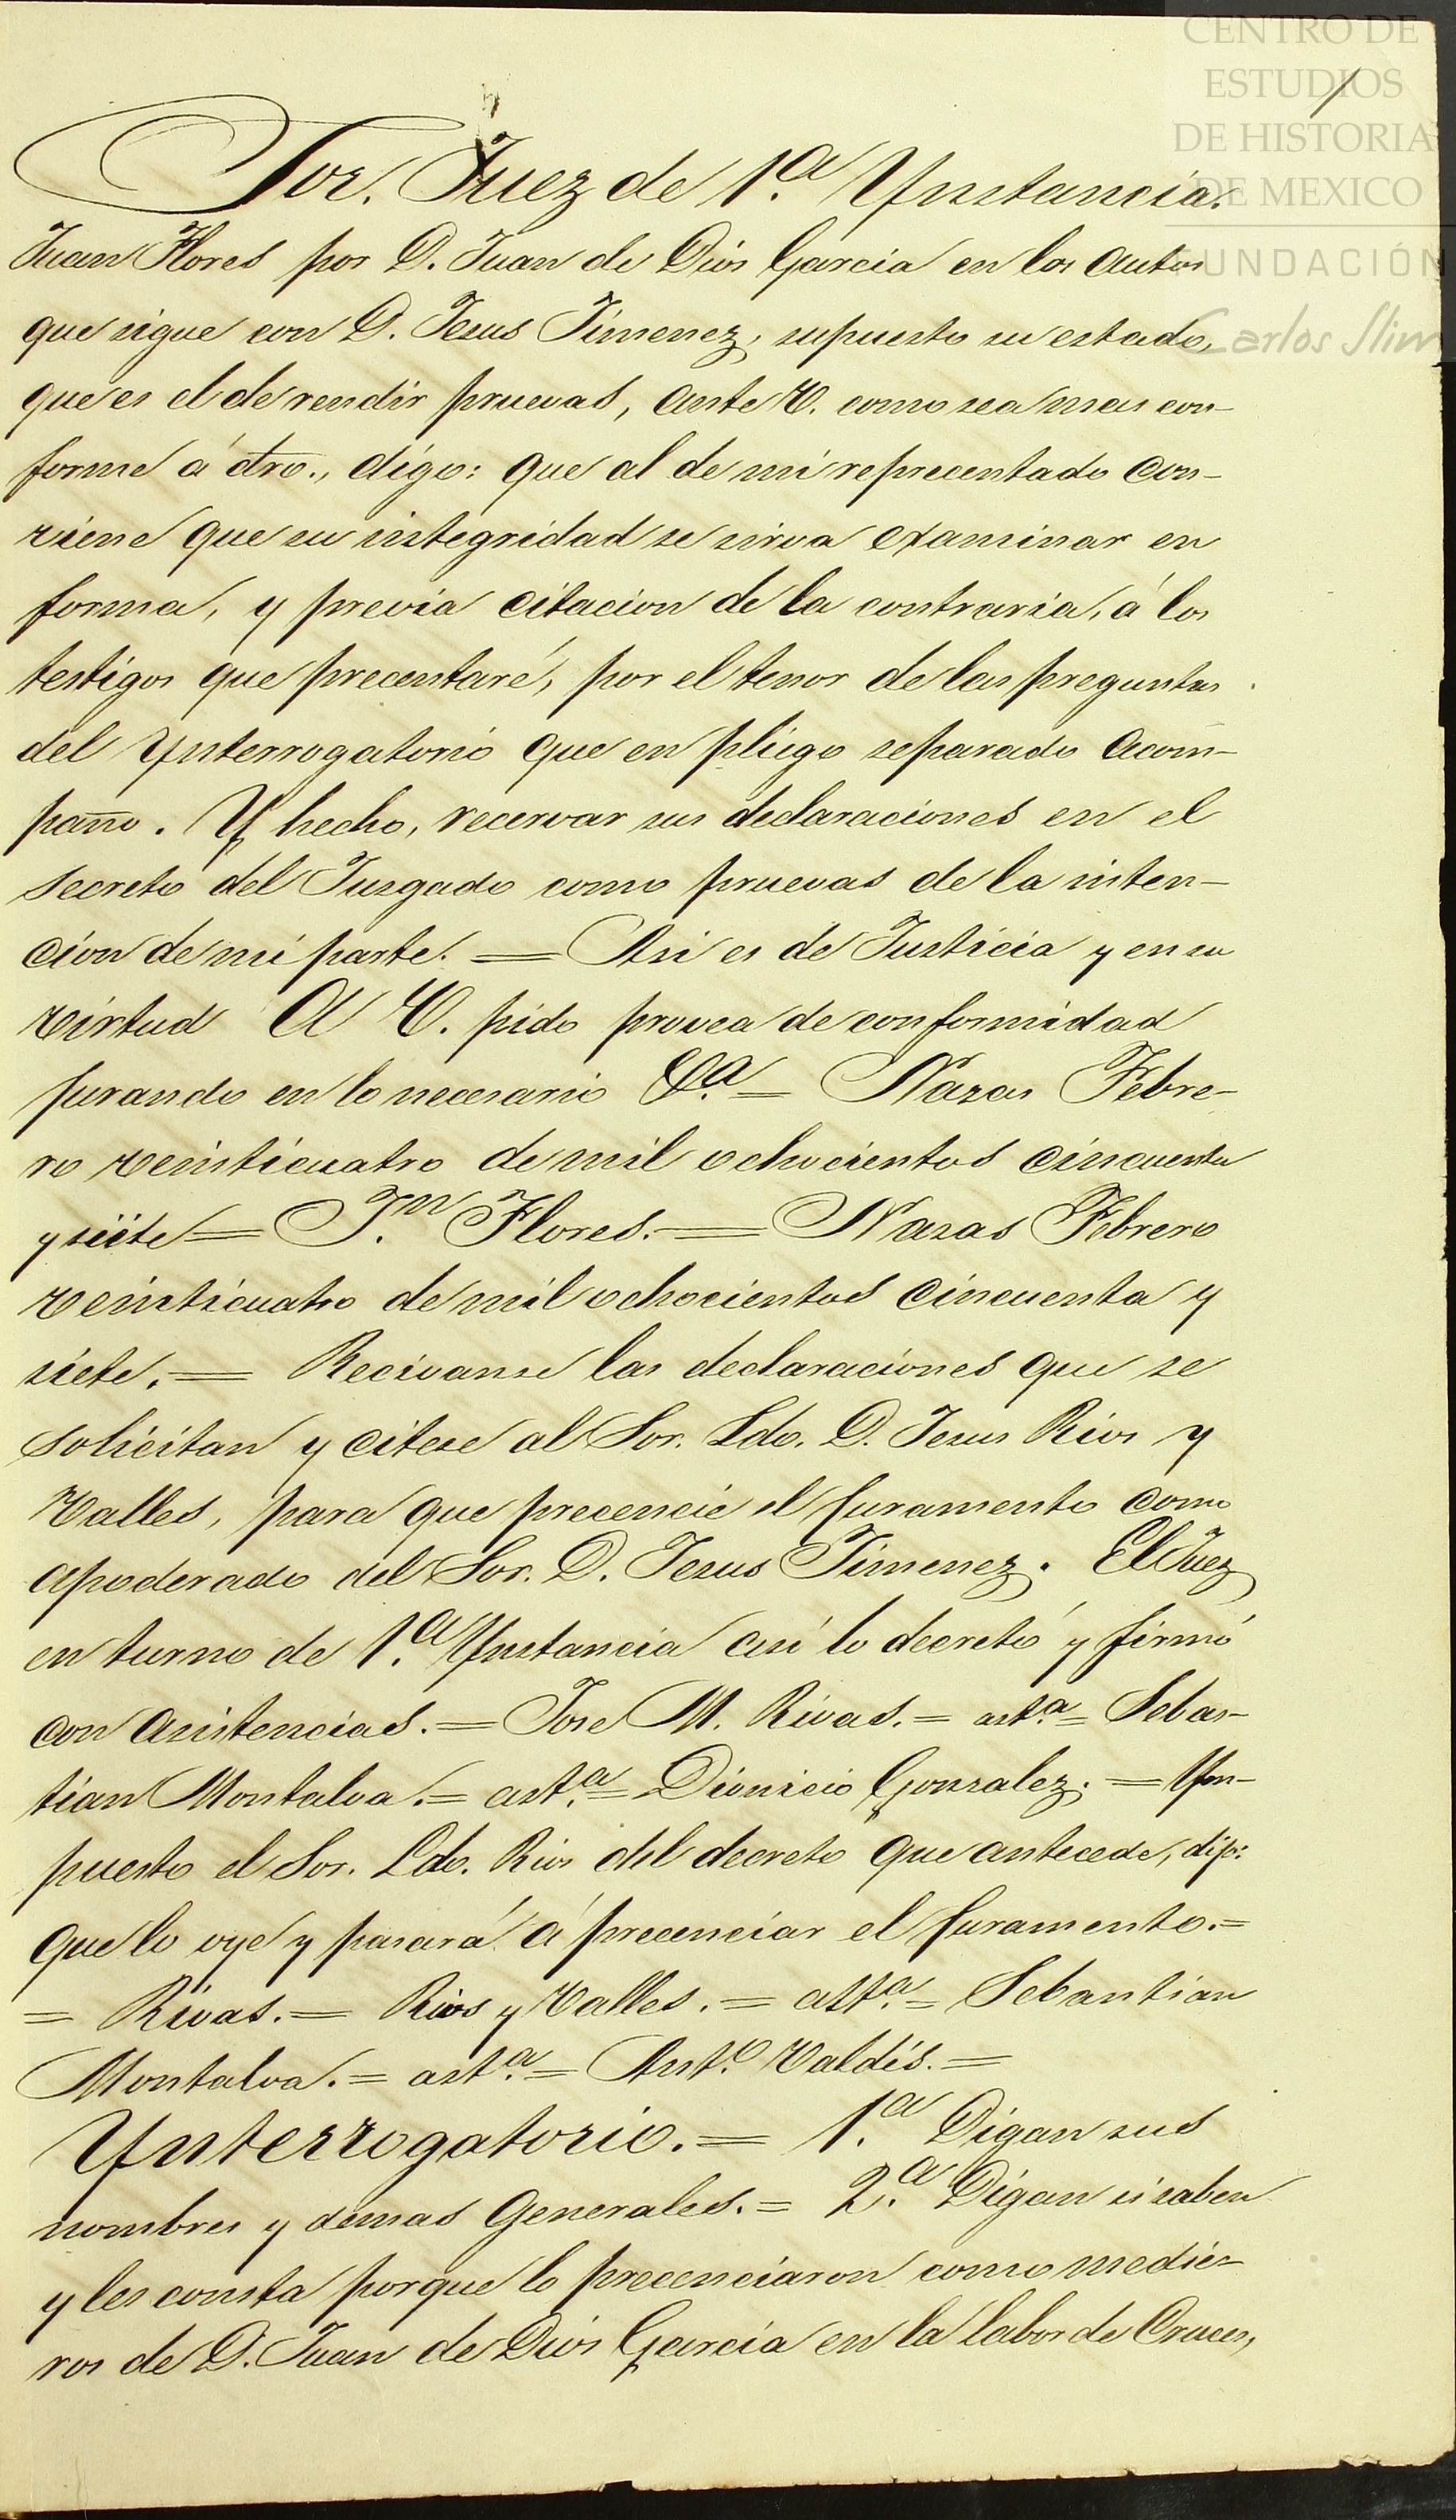 CENTRO DE
ESTUDIOS
DE HISTORIA
DE MEXICO
FUNDACIÓN
Carlos Slim
Sor. Juez de 1.ª Ynstancia.
Juan Flores por D. Juan de Dios Garcia en los autos
que sigue con D. Jesus Jimenez, supuesto su estado,
que es el de rendir pruevas, ante V. como sea mas con-
forme á dro., digo: que al de mi reprecentado con-
viene que su integridad se sirva examinar en
forma, y previa citacion de la contraria, á los
testigos que precentaré, por el tenor de las preguntas
del Ynterrogatorio que en pliego separado acom-
paño. Y hecho, recervar sus declaraciones en el
secreto del Jusgado como pruevas de la inten-
cion de mi parte. = Asi es de Justicia y en su
virtud A V. pido provea de conformidad
jurando en lo necesario &.ª = Nazas Febre-
ro veinticuatro de mil ochocientos cincuenta
y siete = J.n Flores. = Nasas Febrero
veinticuatro de mil ochocientos cincuenta y
siete. = Recivanse las declaraciones que se
solicitan y citese al Sor. Ldo. D. Jesus Rios y
Valles, para que precencie el juramento como
apoderado del Sor. D. Jesus Jimenez. El Juez
en turno de 1.ª Ynstancia asi lo decretó y firmó
con asistencias. = Jose M. Rivas. = ast.ª = Sebas-
tian Montalva. = ast.ª = Dionicio Gonzalez. = Ym-
puesto el Sor. Ldo. Rios del decreto que antecede, dijo:
que lo oye y pasará á precenciar el juramento. =
= Rivas. = Rios y Valles. = ast.ª = Sebastian
Montalva. = ast.ª = Ant.º Valdés. =
Ynterrogatorio. = 1.ª Digan sus
nombres y demas generales. = 2.ª Digan si saben
y les consta porque lo precenciaron como medie-
ros de D. Juan de Dios Garcia en la labor de Cruces,